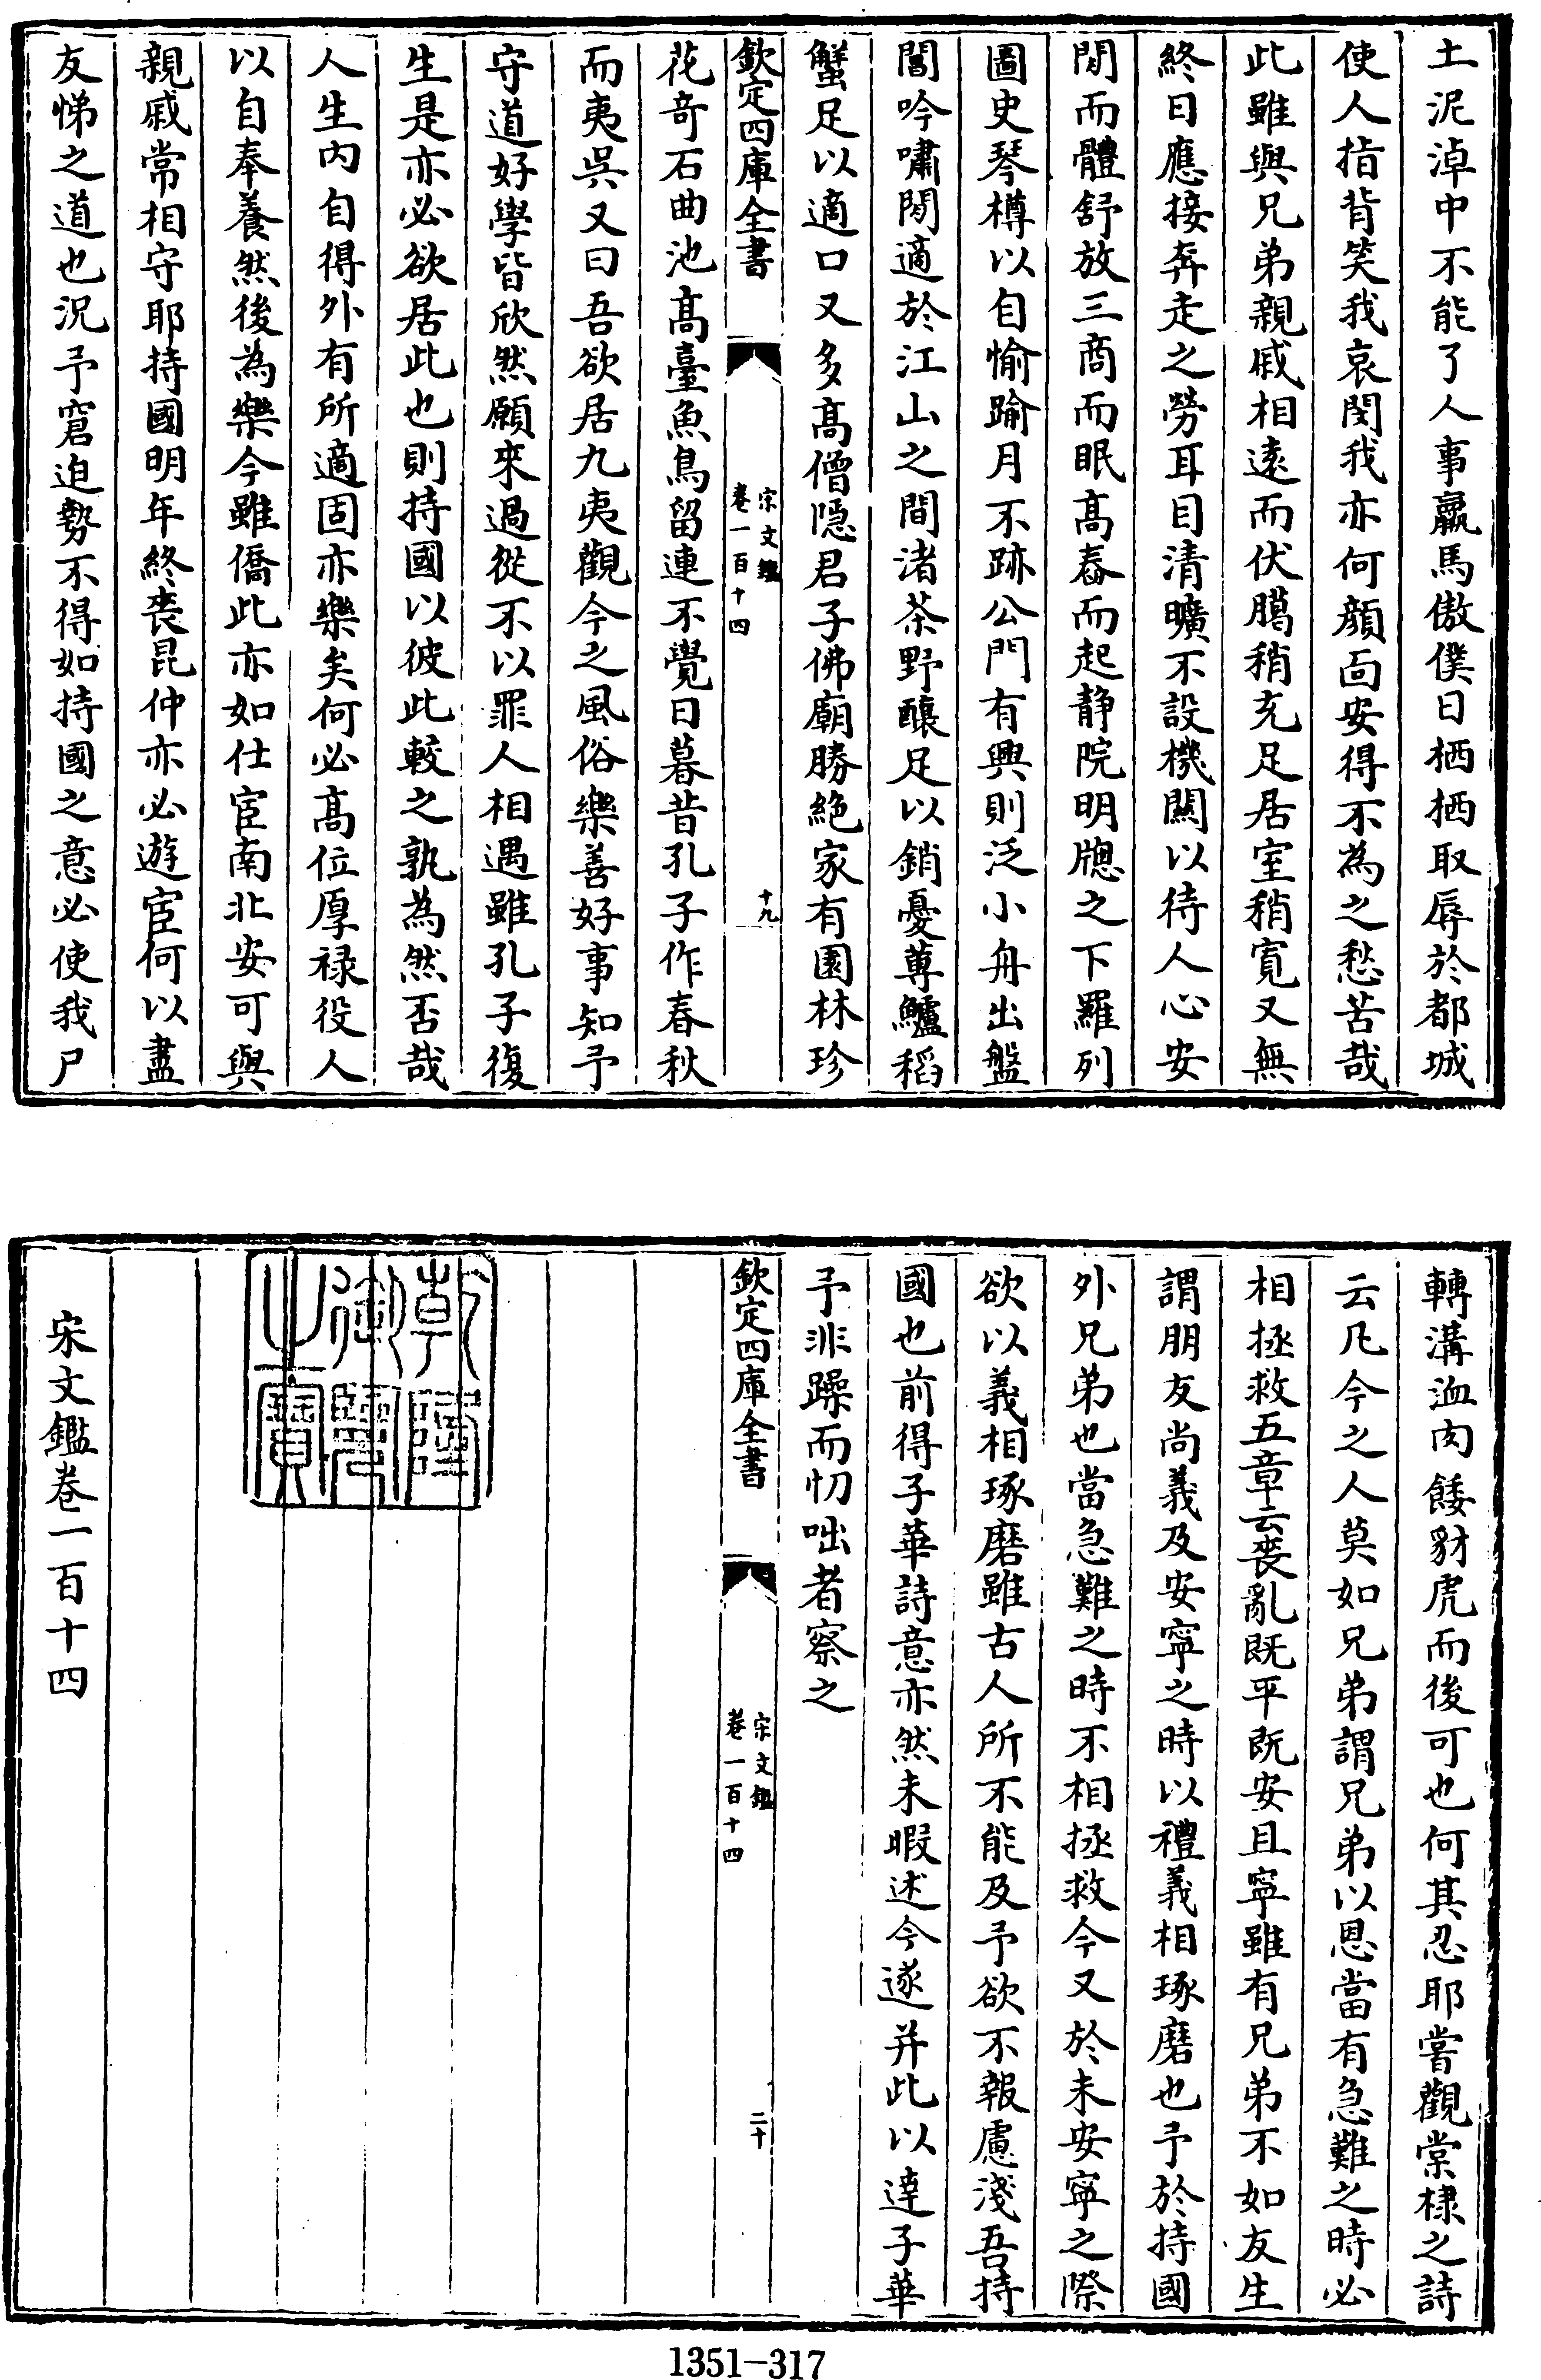 土泥淖中不能了人事羸馬傲僕日栖栖取辱於都城
使人指背笑我哀閔我亦何顔面安得不為之愁苦哉
此雖與兄弟親戚相逺而伏臈稍充足居室稍寛又無
終日應接奔走之勞耳目清曠不設機關以待人心安
閒而體舒放三商而眠髙舂而起静院明牎之下羅列
圖史琴樽以自愉踰月不跡公門有興則泛小舟出盤
閶吟嘯閒適於江山之間渚茶野釀足以銷憂蓴鱸稻
蟹足以適口又多髙僧隱君子佛廟勝絶家有園林珍
欽定四庫全書
宋文鑑
卷一百十四
十九
花奇石曲池髙臺魚鳥留連不覺日暮昔孔子作春秋
而夷吳又曰吾欲居九夷觀今之風俗樂善好事知予
守道好學皆欣然願來過從不以罪人相遇雖孔子復
生是亦必欲居此也則持國以彼此較之孰為然否哉
人生内自得外有所適固亦樂矣何必髙位厚禄役人
以自奉養然後為樂今雖僑此亦如仕宦南北安可與
親戚常相守耶持國明年終喪昆仲亦必遊宦何以盡
友悌之道也況予窘迫勢不得如持國之意必使我尸
轉溝洫肉餧豺虎而後可也何其忍耶嘗觀棠棣之詩
云凡今之人莫如兄弟謂兄弟以恩當有急難之時必
相拯救五章云喪亂既平既安且寧雖有兄弟不如友生
謂朋友尚義及安寧之時以禮義相琢磨也予於持國
外兄弟也當急難之時不相拯救今又於未安寧之際
欲以義相琢磨雖古人所不能及予欲不報慮淺吾持
國也前得子華詩意亦然未暇述今遂并此以達子華
予非躁而忉咄者察之
欽定四庫全書
宋文鑑
卷一百十四
二十
乾隆御覽之寳
宋文鑑卷一百十四
1351-317